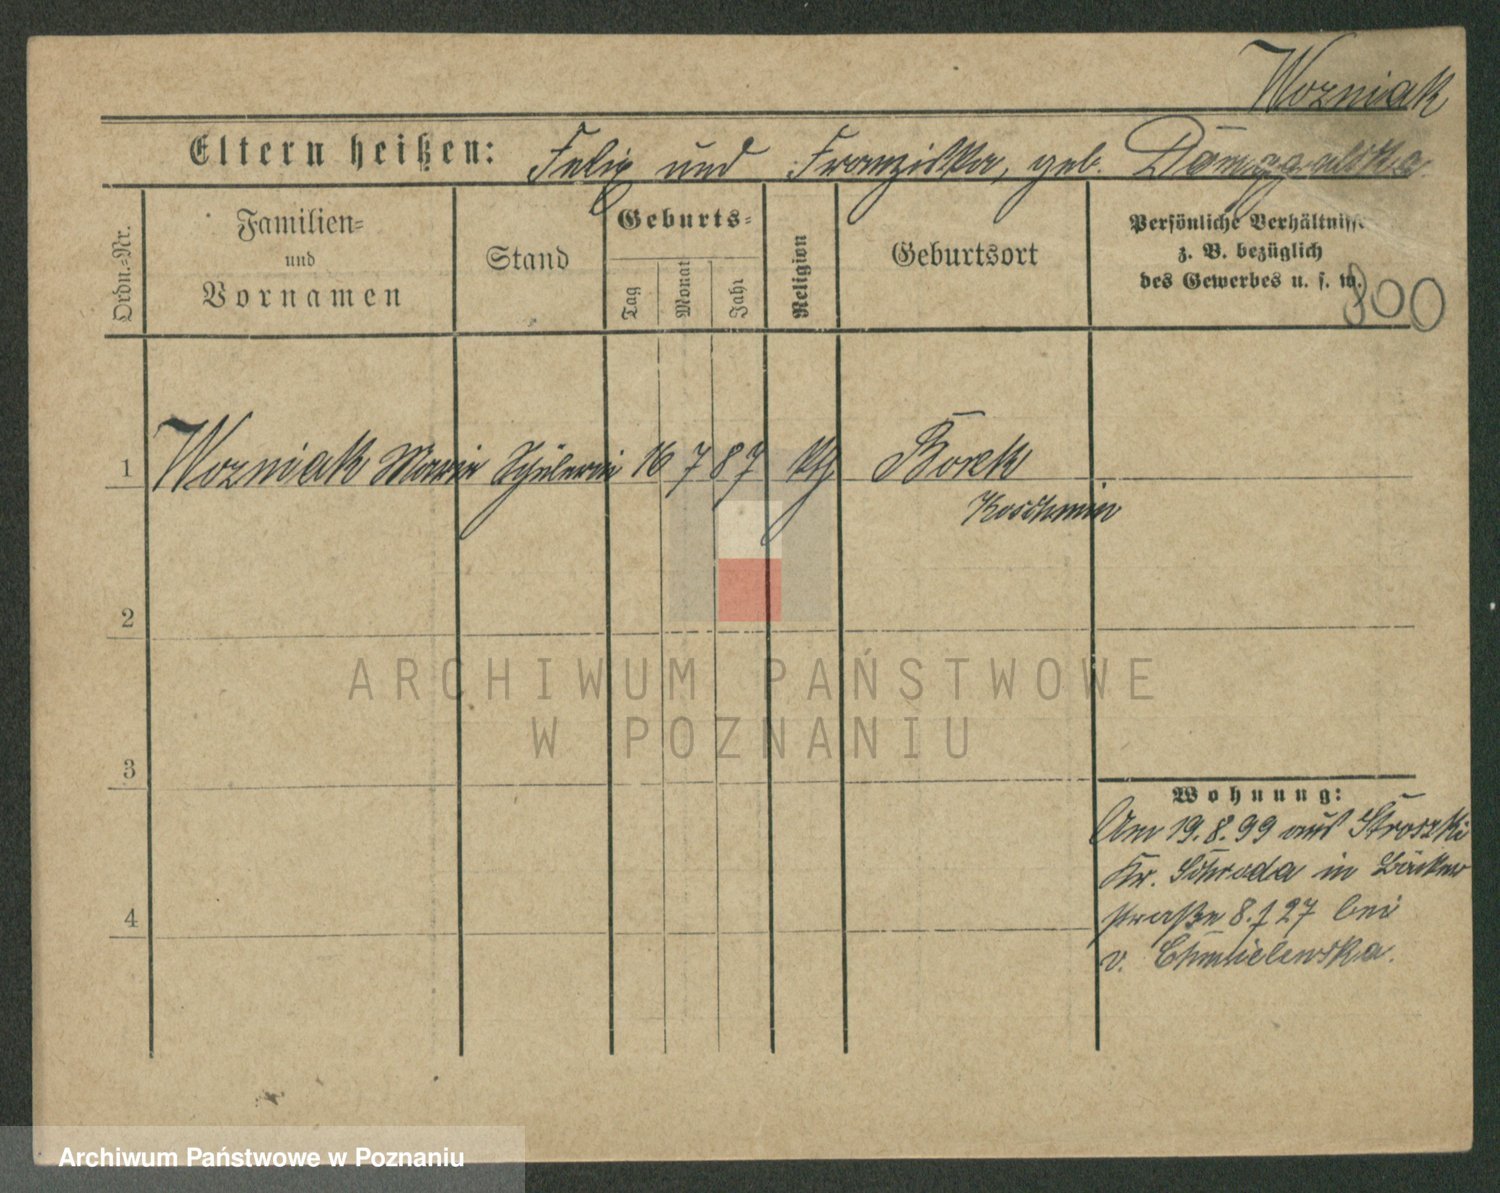 Wozniak
Eltern heißen: Felix und Franziska, geb.
Ordn.-Nr.
Familien-
und
Vornamen
Stand
Geburts-
Tag
Monat
Jahr
Religion
Geburtsort
Persönliche Verhältnisse
z. B. bezüglich
des Gewerbes u. s. w.
800
1 Wozniak Maria Schülerin 16 7 87 kth Borek
Koschmin
2
3
4
Wohnung:
Am 19.8.99 aus Stroszki
Kr. Schroda in Bäcker
straße 8. f 27 bei
v. Chmielewska.
ARCHIWUM PAŃSTWOWE
W POZNANIU
Archiwum Państwowe w Poznaniu